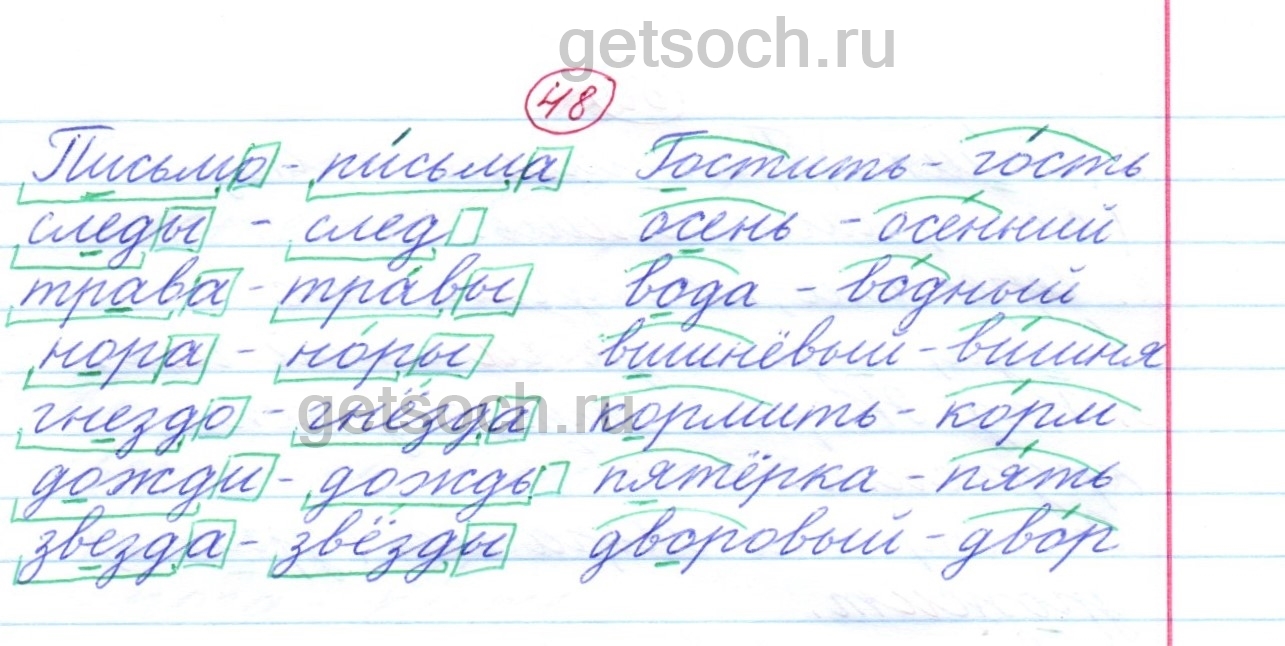 getsoch.ru
48
Письмо - письма Гостить - гость
следы - след осень - осенний
трава - травы вода - водный
нора - норы вишнёвый - вишня
гнездо - гнёзда кормить - корм
getsoch.ru
дожди - дождь пятёрка - пять
звезда - звёзды дворовый - двор